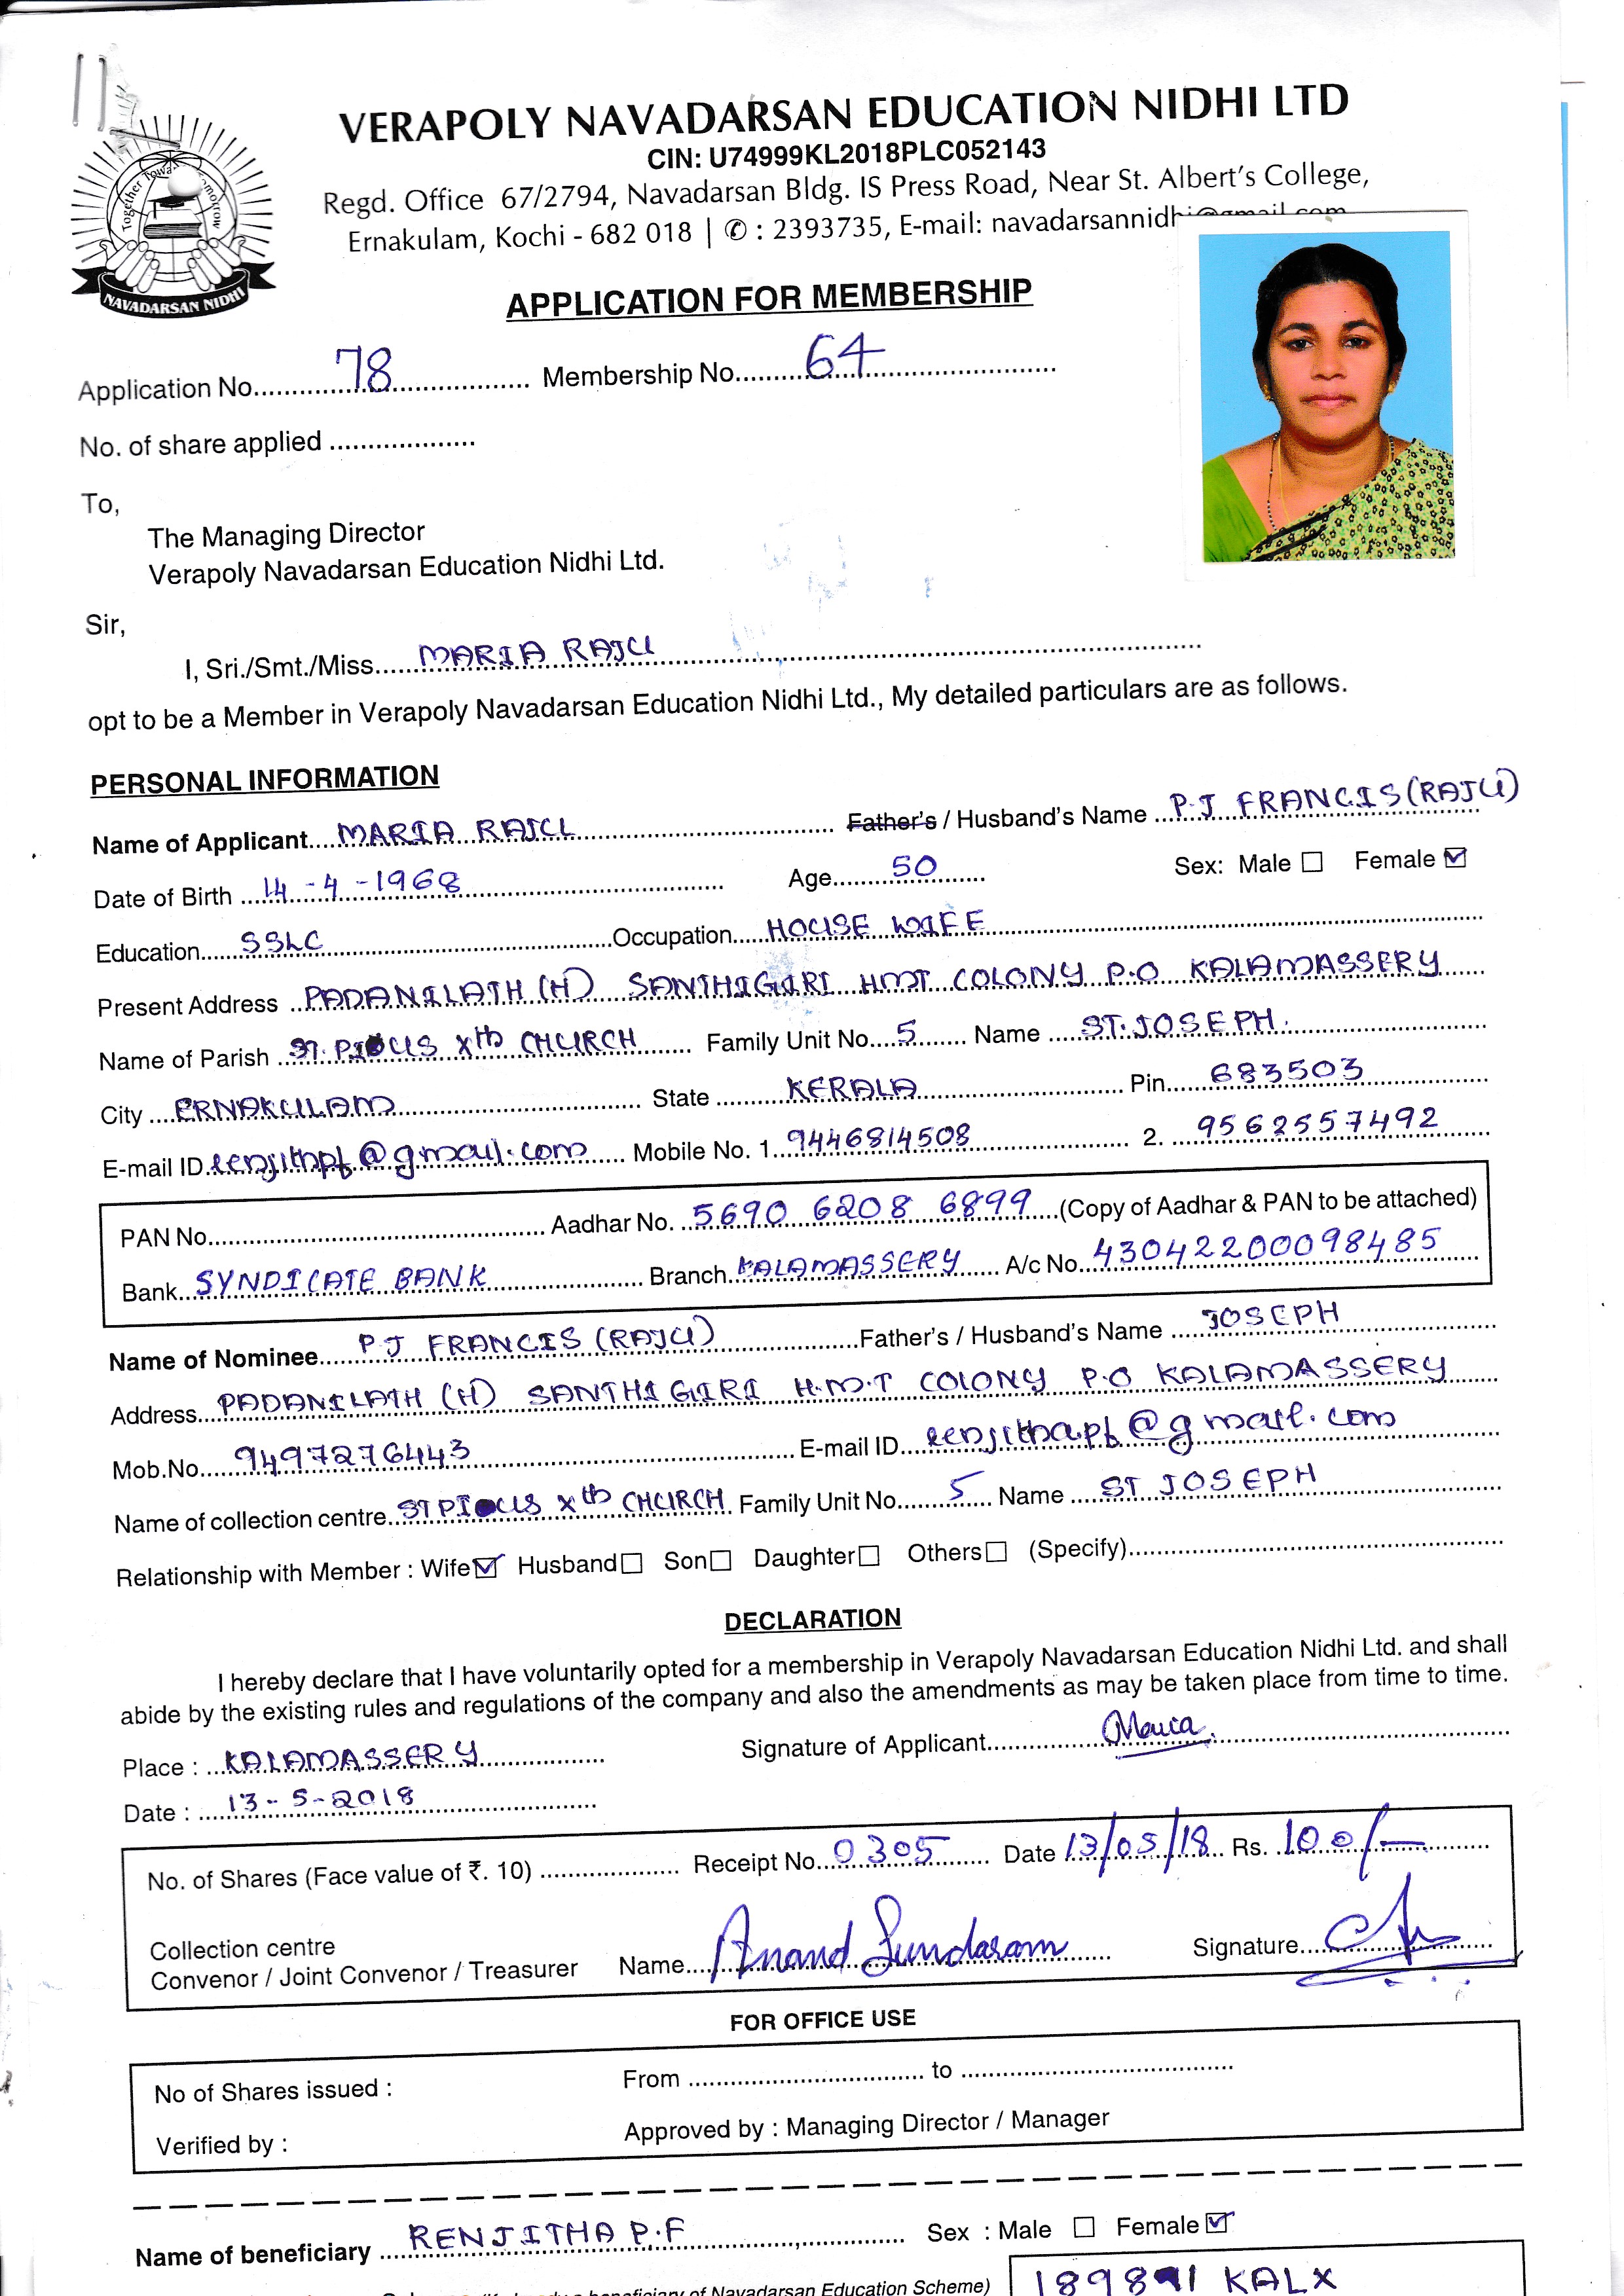 VERAPOLY NAVADARSAN EDUCATION NIDHI LTD
CIN: U74999KL2018PLC052143
Regd. Office 67/2794, Navadarsan Bldg. IS Press Road, Near St. Albert's College,
Ernakulam, Kochi - 682 018 | ✆ : 2393735, E-mail: navadarsannidhi@gmail.com
Together Towards Tomorrow
NAVADARSAN NIDHI
APPLICATION FOR MEMBERSHIP
Application No. 78 Membership No. 64
No. of share applied
To,
The Managing Director
Verapoly Navadarsan Education Nidhi Ltd.
Sir,
I, Sri./Smt./Miss. MARIA RAJU
opt to be a Member in Verapoly Navadarsan Education Nidhi Ltd., My detailed particulars are as follows.
PERSONAL INFORMATION
Name of Applicant MARIA RAJU Father's / Husband's Name P.J FRANCIS (RAJU)
Date of Birth 14-4-1968 Age 50 Sex: Male ☐ Female ☑
Education SSLC Occupation HOUSE WIFE
Present Address PADANILATH (H) SANTHIGIRI HMT COLONY P.O KALAMASSERY
Name of Parish ST. PIOUS Xth CHURCH Family Unit No. 5 Name ST. JOSEPH.
City ERNAKULAM State KERALA Pin 683503
E-mail ID renjithpf@gmail.com Mobile No. 1. 9446814508 2. 9562557492
PAN No. Aadhar No. 5690 6208 6899 (Copy of Aadhar & PAN to be attached)
Bank SYNDICATE BANK Branch KALAMASSERY A/c No. 43042200098485
Name of Nominee P.J FRANCIS (RAJU) Father's / Husband's Name JOSEPH
Address PADANILATH (H) SANTHIGIRI H.M.T COLONY P.O KALAMASSERY
Mob.No. 9497276443 E-mail ID renjithapf@gmail.com
Name of collection centre ST PIOUS Xth CHURCH Family Unit No. 5 Name ST JOSEPH
Relationship with Member : Wife ☑ Husband ☐ Son ☐ Daughter ☐ Others ☐ (Specify)
DECLARATION
I hereby declare that I have voluntarily opted for a membership in Verapoly Navadarsan Education Nidhi Ltd. and shall
abide by the existing rules and regulations of the company and also the amendments as may be taken place from time to time.
Place : KALAMASSERY Signature of Applicant Maria
Date : 13-5-2018
No. of Shares (Face value of ₹. 10) Receipt No. 0305 Date 13/05/18 Rs. 100/-
Collection centre
Convenor / Joint Convenor / Treasurer Name Anand Sundaram Signature
FOR OFFICE USE
No of Shares issued : From to
Verified by : Approved by : Managing Director / Manager
Name of beneficiary RENJITHA P.F Sex : Male ☐ Female ☑
beneficiary of Navadarsan Education Scheme) 189891 KALX